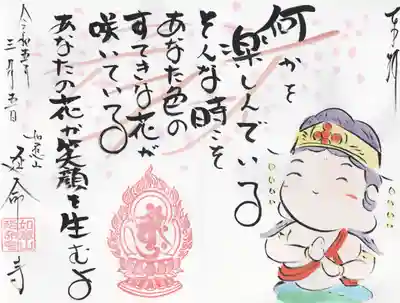 奉拝
何かを
楽しんでいる
そんな時こそ
あなた色の
すてきな花が
咲いている
あなたの花が笑顔を生むよ
令和五年
三月五日
如意山
延命寺